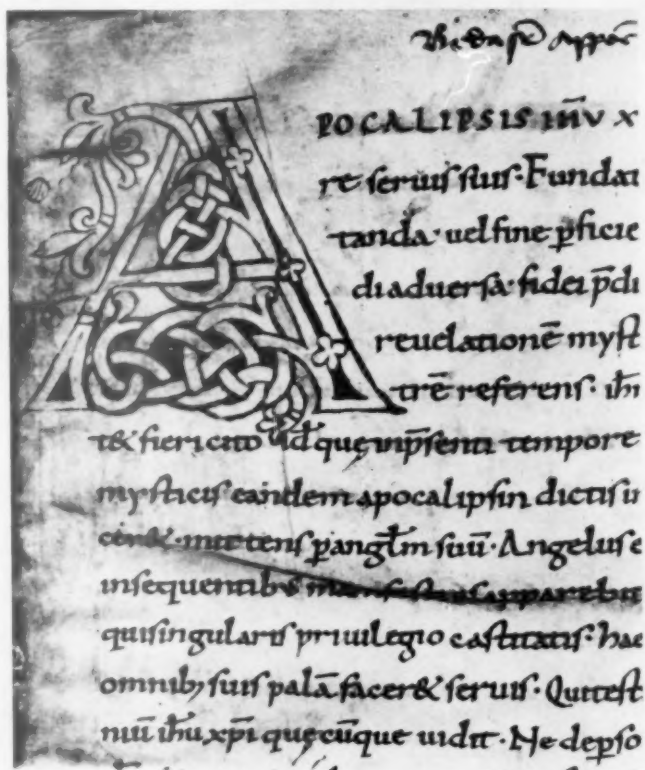 APOCALIPSIS ihū x
re seruis suis. Fundat
tanda. uel fine p̄ficie
di aduersa. fidei p̄di
reuelationē myst
trē referens. ih̄
t& fieri cito id quę inp̄senti tempore
mysticis eandem apocalipsin dictis
mittens p̄ angl̄m suū. Angelus e
insequentibus apparebit
qui singularis priuilegio castitatis. hae
omnib; suis palā facer& seruis. Qui test
niū ih̄u xp̄i quęcūque uidit. Ne de p̄so